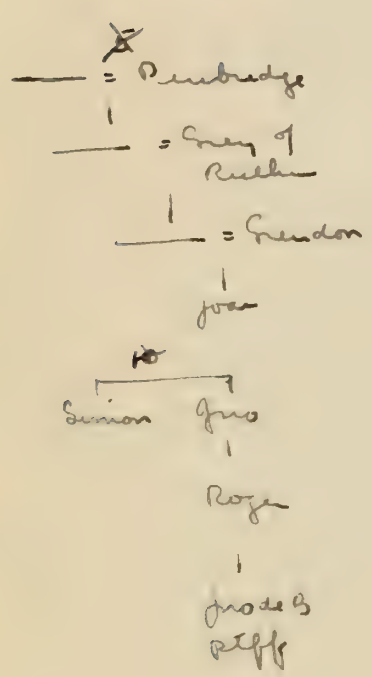 = Pembridge
= Grey of
Ruthin
= Grendon
Joan
Simon Jno
Roger
Jno de B
ptff